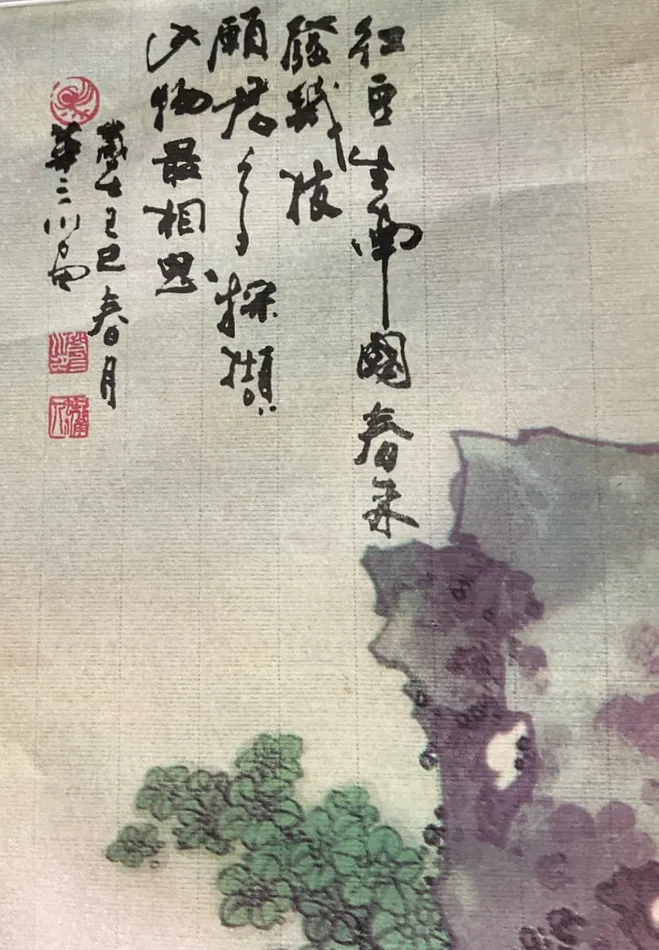 紅豆生南國春來
發幾枝
願君多採擷
此物最相思
歲在己巳春月
華三川畫